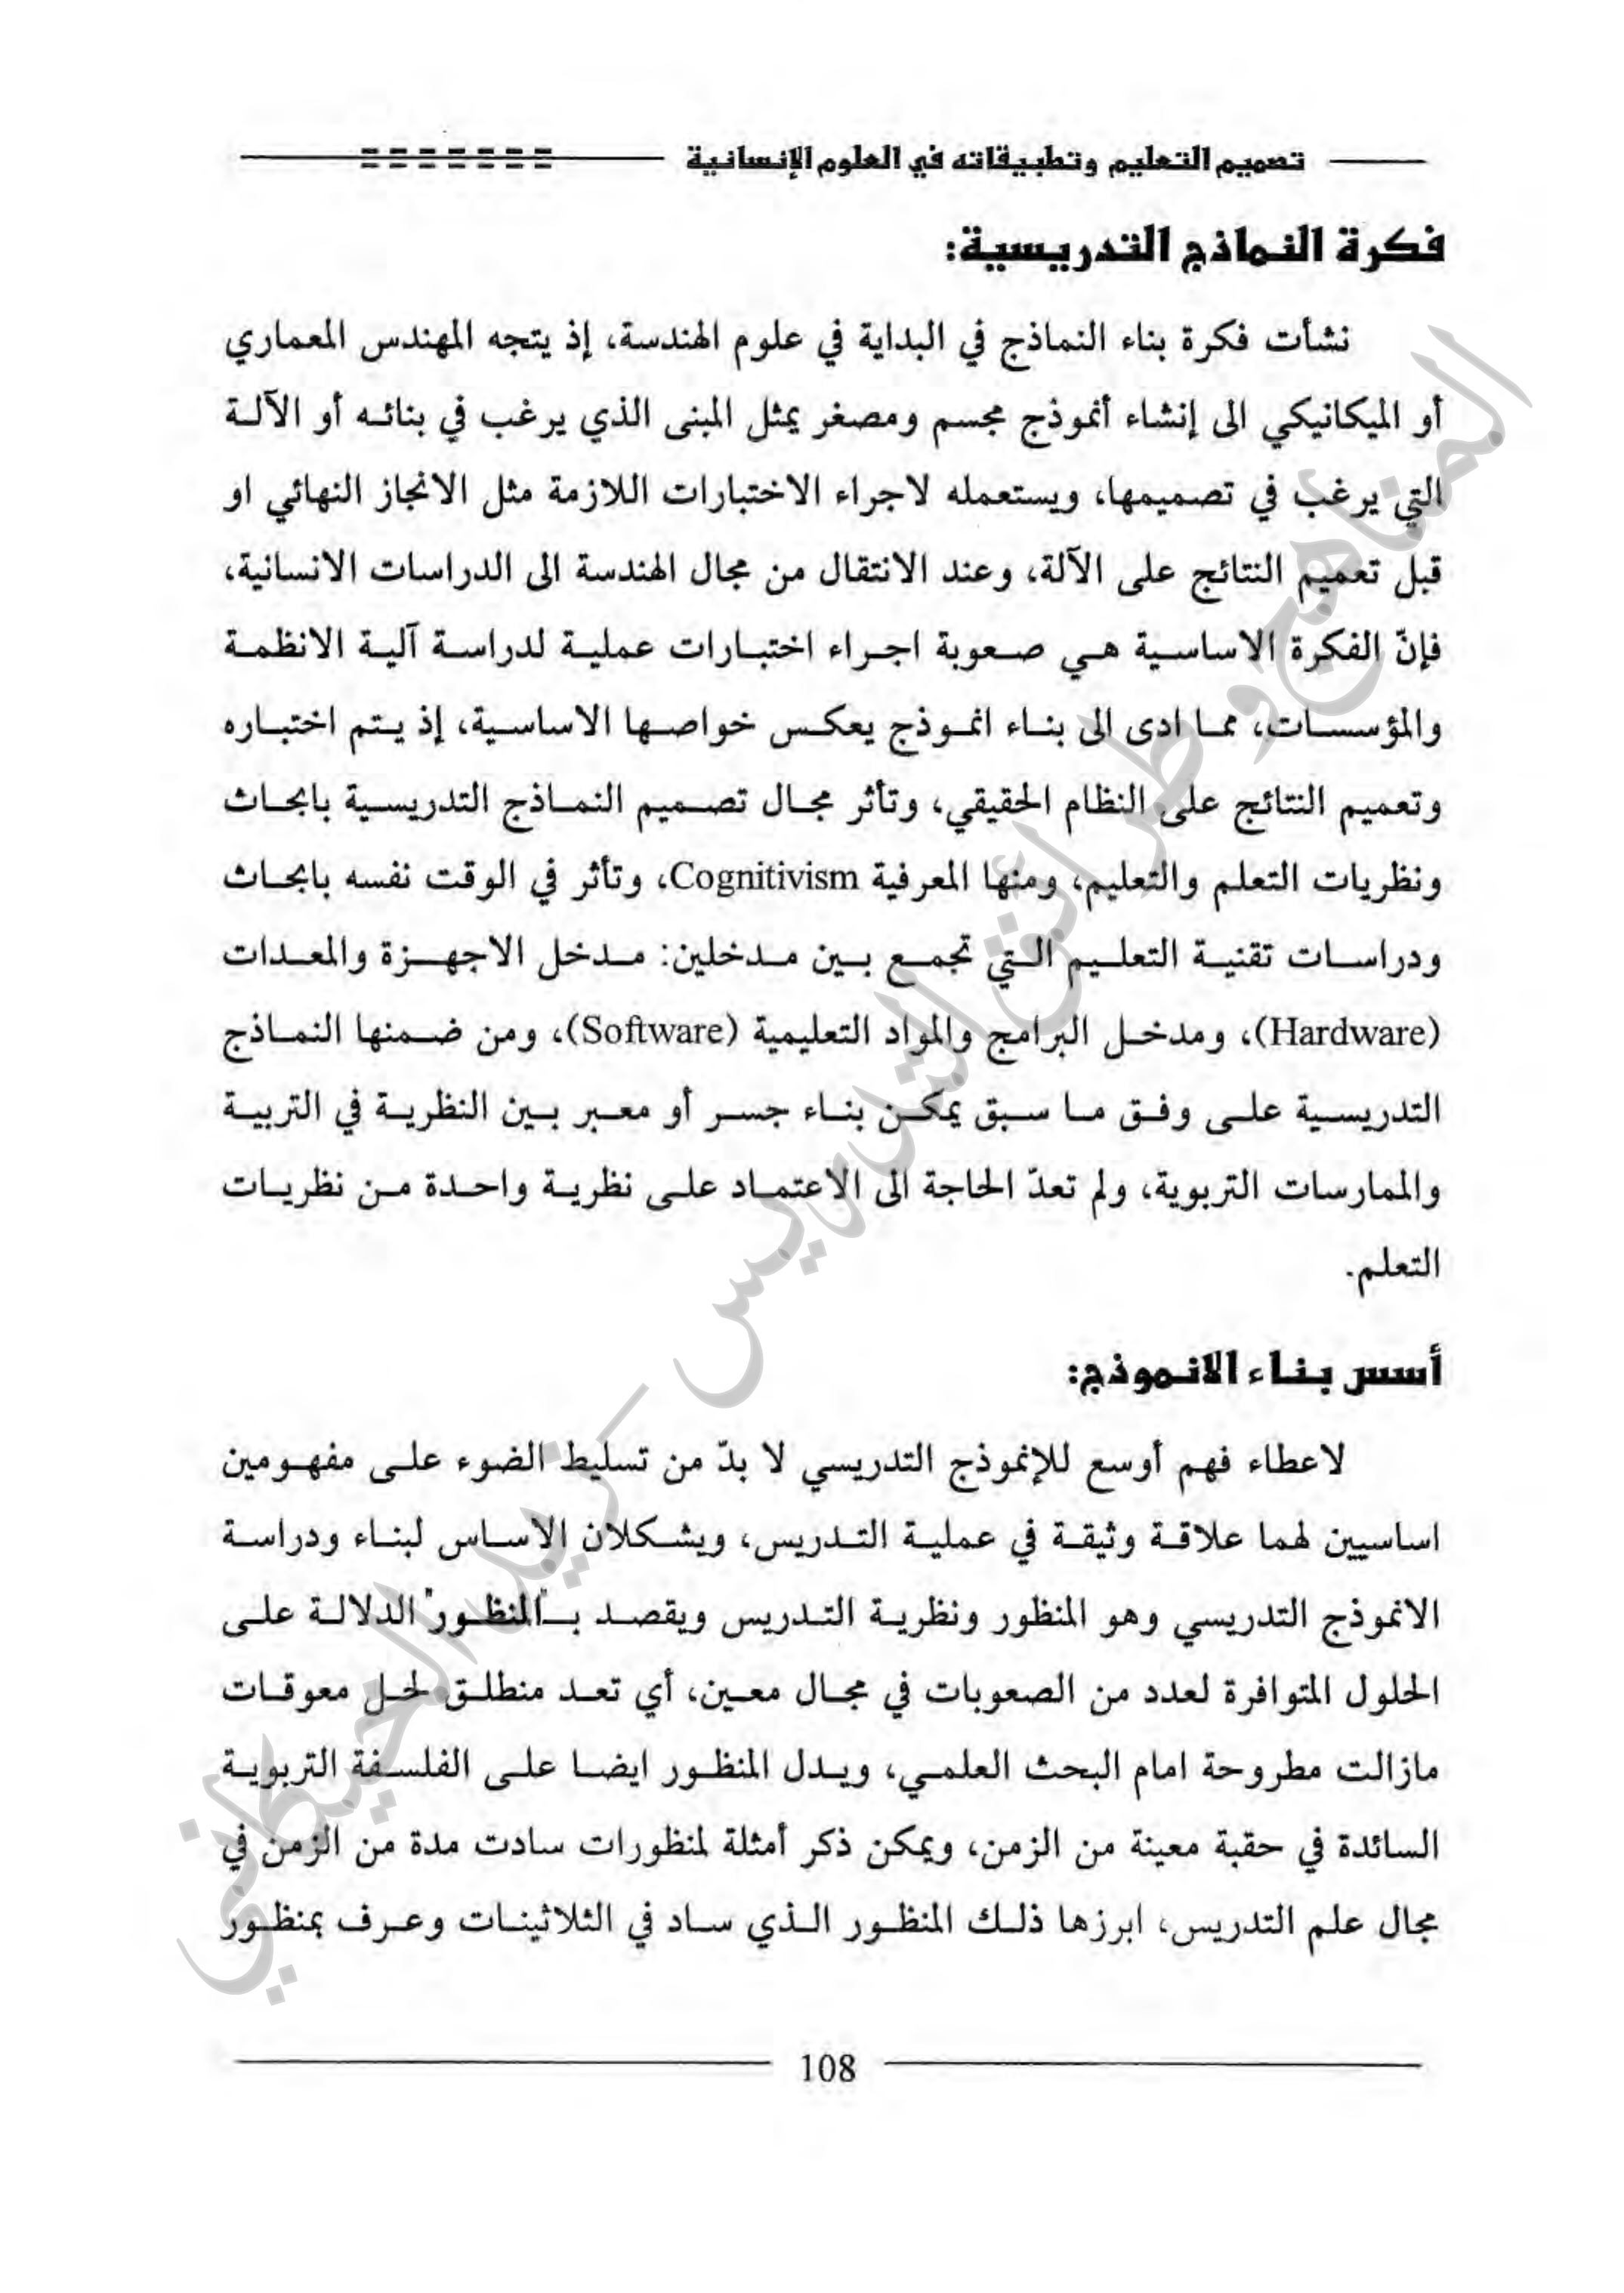 تصميم التعليم وتطبيقاته في العلوم الإنسانية
فكرة النماذج التدريسية:
نشأت فكرة بناء النماذج في البداية في علوم الهندسة، إذ يتجه المهندس المعماري
أو الميكانيكي الى إنشاء أنموذج مجسم ومصغر يمثل المبنى الذي يرغب في بنائه أو الآلة
التي يرغب في تصميمها، ويستعمله لاجراء الاختبارات اللازمة مثل الانجاز النهائي او
قبل تعميم النتائج على الآلة، وعند الانتقال من مجال الهندسة الى الدراسات الانسانية،
فإنّ الفكرة الاساسية هي صعوبة اجراء اختبارات عملية لدراسة آلية الانظمة
والمؤسسات، مما ادى الى بناء انموذج يعكس خواصها الاساسية، إذ يتم اختباره
وتعميم النتائج على النظام الحقيقي، وتأثر مجال تصميم النماذج التدريسية بابحاث
ونظريات التعلم والتعليم، ومنها المعرفية Cognitivism، وتأثر في الوقت نفسه بابحاث
ودراسات تقنية التعليم التي تجمع بين مدخلين: مدخل الاجهزة والمعدات
(Hardware)، ومدخل البرامج والمواد التعليمية (Software)، ومن ضمنها النماذج
التدريسية على وفق ما سبق يمكن بناء جسر أو معبر بين النظرية في التربية
والممارسات التربوية، ولم تعدّ الحاجة الى الاعتماد على نظرية واحدة من نظريات
التعلم.
أسس بناء الانموذج:
لاعطاء فهم أوسع للإنموذج التدريسي لا بدّ من تسليط الضوء على مفهومين
اساسيين لهما علاقة وثيقة في عملية التدريس، ويشكلان الاساس لبناء ودراسة
الانموذج التدريسي وهو المنظور ونظرية التدريس ويقصد بـ"المنظور" الدلالة على
الحلول المتوافرة لعدد من الصعوبات في مجال معين، أي تعد منطلق لحل معوقات
مازالت مطروحة امام البحث العلمي، ويدل المنظور ايضا على الفلسفة التربوية
السائدة في حقبة معينة من الزمن، ويمكن ذكر أمثلة لمنظورات سادت مدة من الزمن في
مجال علم التدريس، ابرزها ذلك المنظور الذي ساد في الثلاثينات وعرف بمنظور
108
المناهج وطرائق التدريس - زيد الخيكاني